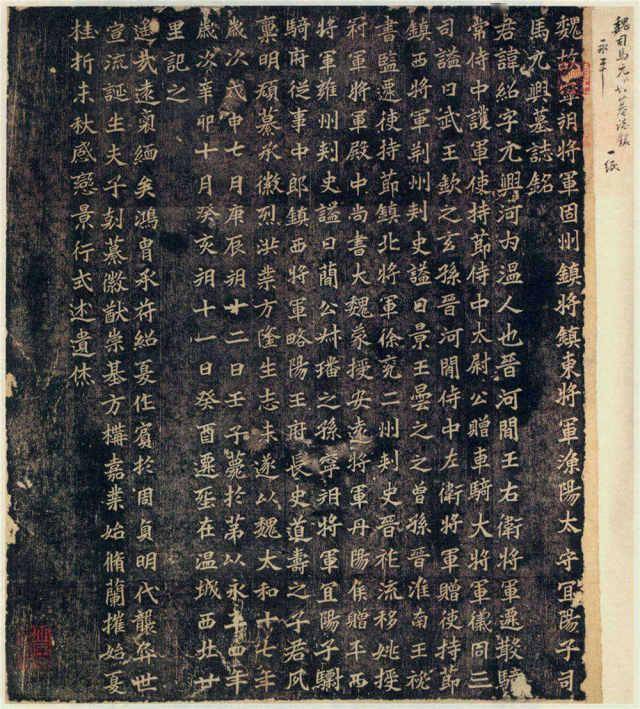 魏司馬元興墓誌銘 一紙
永平
魏故寧朔將軍固州鎮將鎮東將軍漁陽太守宜陽子司
馬元興墓誌銘
君諱紹字元興河內溫人也晉河間王右衛將軍遷散騎
常侍中護軍使持節侍中太尉公贈車騎大將軍儀同三
司謚曰武王欽之玄孫晉河間侍中左衛將軍贈使持節
鎮西將軍荊州刺史謚曰景王曇之之曾孫晉淮南王祕
書監遷使持節鎮北將軍徐兗二州刺史晉祚流移姚授
冠軍將軍殿中尚書大魏蒙授安遠將軍丹陽侯贈平西
將軍雍州刺史謚曰簡公叔璠之孫寧朔將軍宜陽子驃
騎府從事中郎鎮西將軍略陽王府長史道壽之子君夙
稟明穎纂承徽烈洪業方隆生志未遂以魏太和十七年
歲次戊申七月庚辰朔十二日壬子薨於第以永平四年
歲次辛卯十月癸亥朔十一日癸酉遷塋在溫城西北廿
里記之
遙哉遠裔緬矣鴻胄承苻紹夏作賓於周貞明代襲弈世
宣流誕生夫子剋纂徽猷崇基方構嘉業始脩蘭摧始夏
桂折未秋感戀景行式述遺休